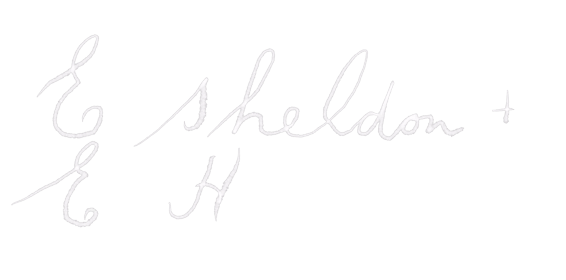 E sheldon +
E H